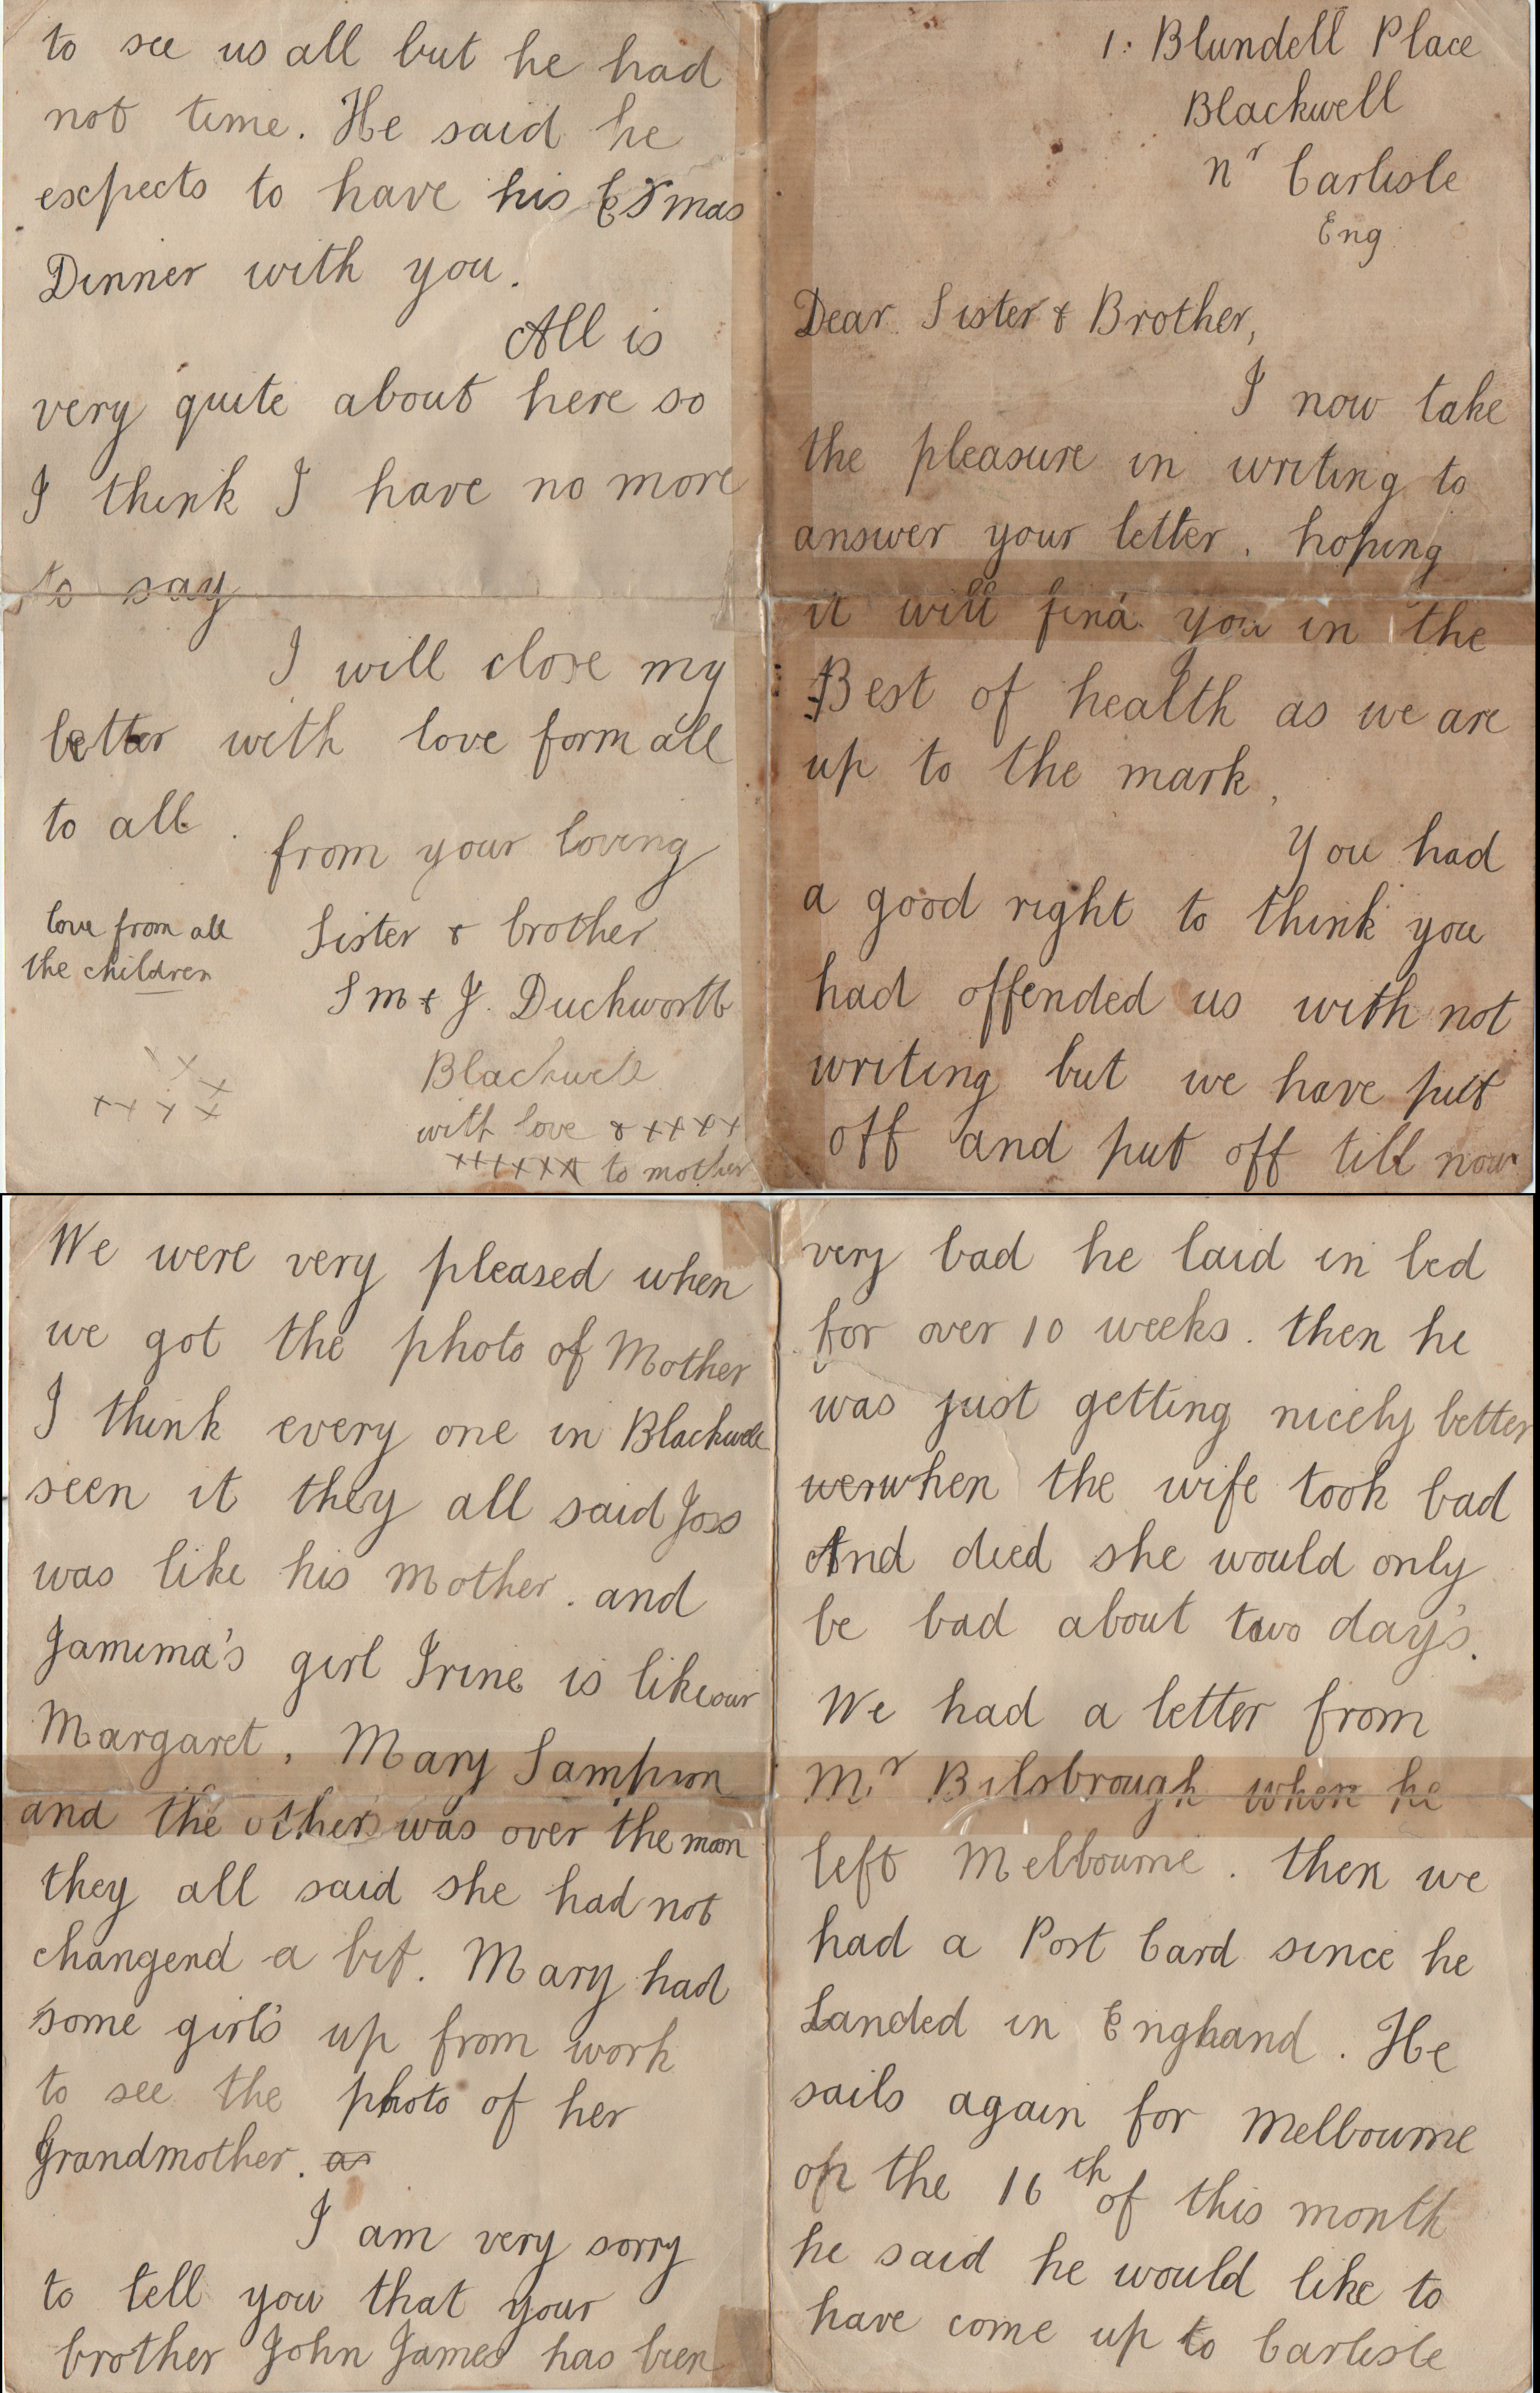 1: Blundell Place
Blackwell
nr Carlisle
Eng
Dear Sister & Brother,
I now take
the pleasure in writing to
answer your letter, hoping
it will find you in the
Best of health as we are
up to the mark,
You had
a good right to think you
had offended us with not
writing but we have put
off and put off till now
We were very pleased when
we got the photo of Mother
I think every one in Blackwell
seen it they all said Joss
was like his Mother. and
Jamima's girl Irine is like our
Margaret, Mary Sampson
and the others was over the moon
they all said she had not
changend a bit. Mary had
some girl's up from work
to see the photo of her
Grandmother. as
I am very sorry
to tell you that your
brother John James has been
very bad he laid in bed
for over 10 weeks. then he
was just getting nicely better
wer when the wife took bad
And died she would only
be bad about two day's.
We had a letter from
Mr Bilsbrough when he
left Melbourne. then we
had a Post Card since he
Landed in England. He
sails again for Melbourne
on the 16th of this month
he said he would like to
have come up to Carlisle
to see us all but he had
not time. He said he
escpects to have his Xmas
Dinner with you.
All is
very quite about here so
I think I have no more
to say
I will close my
letter with love form all
to all.
from your loving
Sister & brother
S M & J. Duckworth
Blackwell
with love & xxxx
xxxxxx to mother
love from all
the children
x x
x x x x